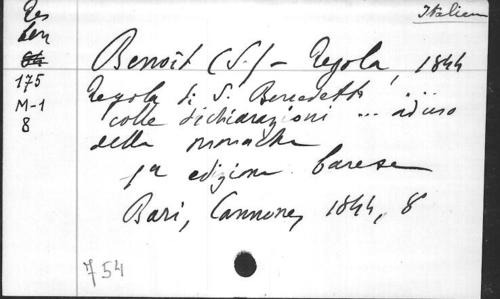 Italien
Res
Ben
175
M-1
8
Benoit (S.) - Regola, 1844
Regola di S. Benedetto ...
colle dichiarazioni ... ad uso
delle monache
1a edizione barese
Bari, Cannone, 1844, 8
754